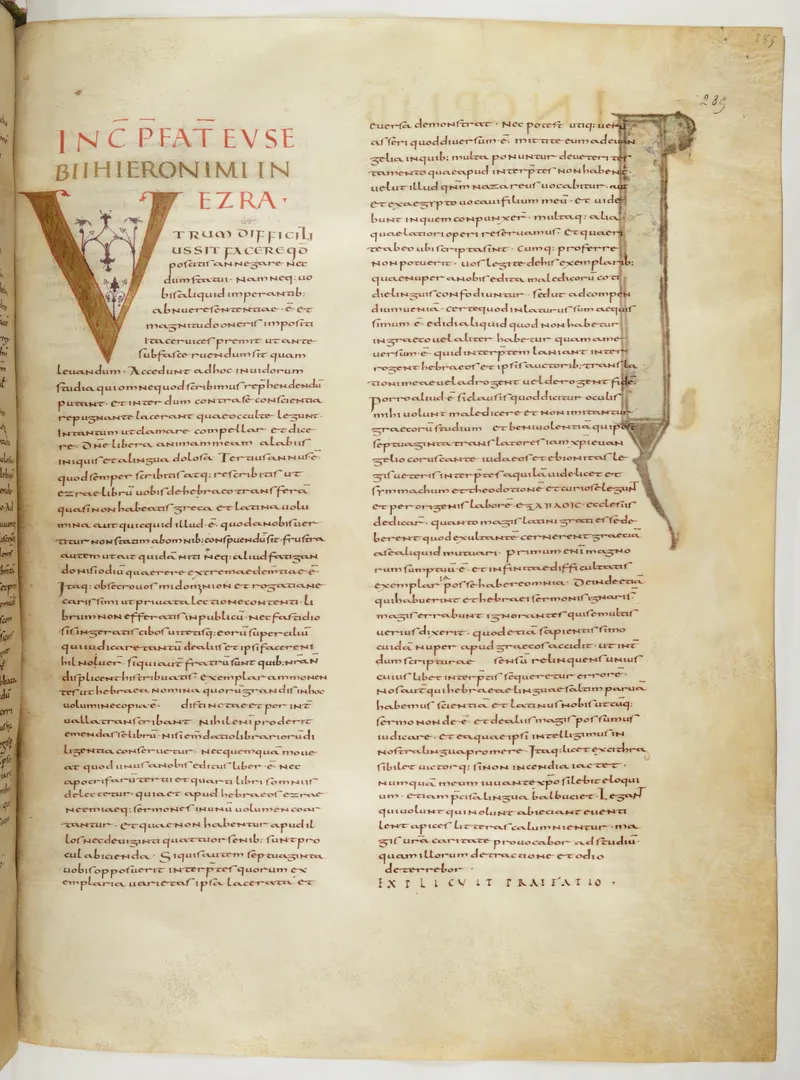 285
289
INC̄ P̄FAT EVSE
BII HIERONIMI IN
EZRA·
VTRUM DIFFICILI
US SIT FACERE QD̄
poscitis an negare nec
dum statui· Nam neq: uo
bis aliquid imperantib:
abnuere sententiae· ē· et
magnitudo oneris impositi
ita cervices premit ut ante
sub fasce ruendum sit quam
leuandum· Accedunt ad hoc inuidorum
studia qui omne quod scribimus rephendendū
putant· et inter dum contra se conscientia
repugnante lacerant quae occulte legunt·
Intantum ut clamare compellar et dice
re· Dn̄e libera animam meam a labiis
iniquis et a lingua dolosa· Tertius annus ē·
quod semper scribitis atq: rescribitis ut
ezrae librū uobis de hebraeo transferā
quasi non habeatis greca et latina uolu
mina aut quicquid illud· ē· quod a nobis uer
titur non statim ab omnib: conspuendū sit· frustra
autem ut ait quidā niti neq: aliud fatigan
do nisi odiū quaerere extremae dem̄tiae· ē·
Itaq: obsecro uos mi domnion et rogatiane
carissimi ut priuata lectione contenti· li
brum non efferatis in publicū· Nec fastidio
sis ingeratis cibos uitetisq: eorū superciliū
qui iudicare tantū de aliis et ipsi facere ni
hil nouer· Si qui aut fratrū sunt quib: n̄ra n̄
displicent his tribuatis exemplar ammonen
tes ut hebraea nomina quorū grandis in hoc
uolumine copia· ē· distincte et per int̄
ualla transcribant· Nihil eni proderit
emendasse librū· Nisi emdatio librarioru di
ligentia conseruetur· Nec quemquā moue
at quod unus a nobis editus liber· ē· Nec
apocrifarū tertii et quarti libri somniis
delectetur· quia et apud hebraeos ezrae
neemiaeq: sermones in unū uolumen coar
tantur· Et quae non habentur apud il
los nec de uiginti quattuor senib: sunt pro
cul abicienda· Si quis autem septuaginta
uobis opposuerit interp̄tes quorum ex
emplaria uarietas ipsa lacerata et
euersa demonstrat· Nec potest utiq: ueru
asseri quod diuersum· ē· mittite eum ad euan
gelia in quib: multa ponuntur de ueteri tes
tamento quae apud interp̄tes non habent
uelut illud qnm̄ nazareus uocabitur· aut
et ex aegypto uocaui filium meū· et uide
bunt in quem conpunxer̄· multaq: alia
quae latiori operi reseruamus· Et quaeri
te ab eo ubi scripta sint· Cumq: proferre
non potuerit· uos legite de his exemplarib:
quae nuper a nobis edita maledicorū coti
die linguis confodiuntur· sed ut ad compen
dium ueniā· certe quod inlaturus sum aequis
simum· ē· edidi aliquid quod non habetur
in graeco uel aliter habetur quam a me
uersum· ē· quid interp̄tem laniant inter
rogent hebraeos et ipsis auctorib: transla
tioni meae uel adrogent uel derogent fidē
Porro aliud· ē· si clausis quod dicitur oculis
mihi uolunt maledicere et non imitantur
graecorū studium et beniuolentiā qui post
septuaginta translatores iam xpi euan
gelio coruscante iudaeos et ebionitas le
gis ueteris interp̄tes aquilā uidelicet et
symmachum et theodotionē et curiose legunt
et per origenis laborē εζαπλοις ecclesiis
dedicar̄· quanto magis latini grati esse de
berent quod exultantē cernerent graeciā
a se aliquid mutuari· primum eni magno
rum sumptuū· ē· et infinitae difficultatis
exemplaria posse habere omnia· Deinde etiā
qui habuerint et hebraei sermonis ignaris·
magis errabunt ignorantes quis e multis
uerius dixerit· quod etiā sapientissimo
cuidā nuper apud graecos accidit· ut int̄
dum scripturae sensū relinquens unius
cuiuslibet interp̄tis sequeretur errorē·
Nos aut qui hebraeae linguae saltim parua
habemus scientiā et latinus nobis utcūq:
sermo non de· ē· et de aliis magis possumus
iudicare· et ea quae ipsi intellegimus in
nostra lingua promere· Itaq: licet excithra
sibilet uictorq: sinon incendia iactet·
Numquā meum iuuante xp̄o silebit eloqui
um· etiam p̄cisa lingua balbuciet· Legant
qui uolunt qui nolunt abiciant euenti
lent apices litteras calumnientur· ma
gis urā caritate prouocabor ad studiū·
quam illorum detractione et odio
deterrebor·
EXPLICVIT PRAEFATIO·